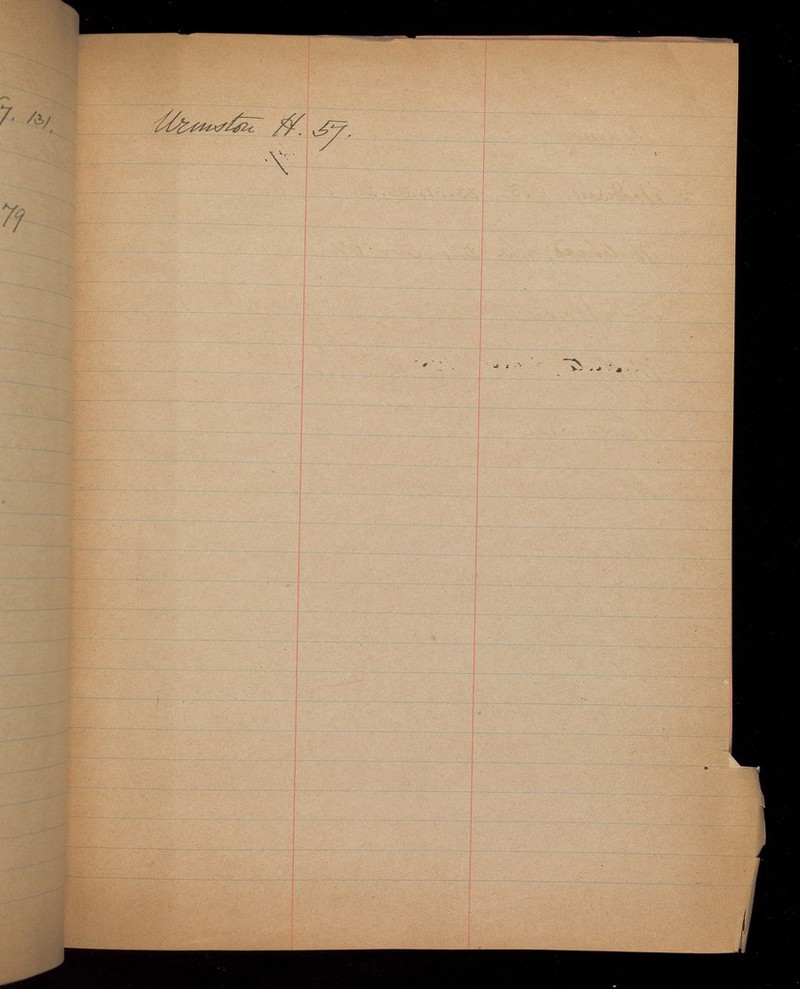 131.
79
Urmston H. 57.